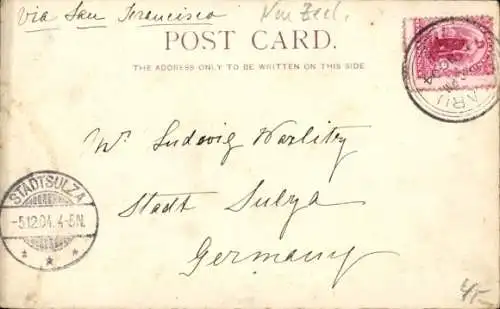 Via San Francisco
Neu Zeel.
POST CARD.
THE ADDRESS ONLY TO BE WRITTEN ON THIS SIDE
ARU
Mr. Ludwig Warlitz
Stadt Sulza
Germany
STADTSULZA
-5.12.04. 4-5N.